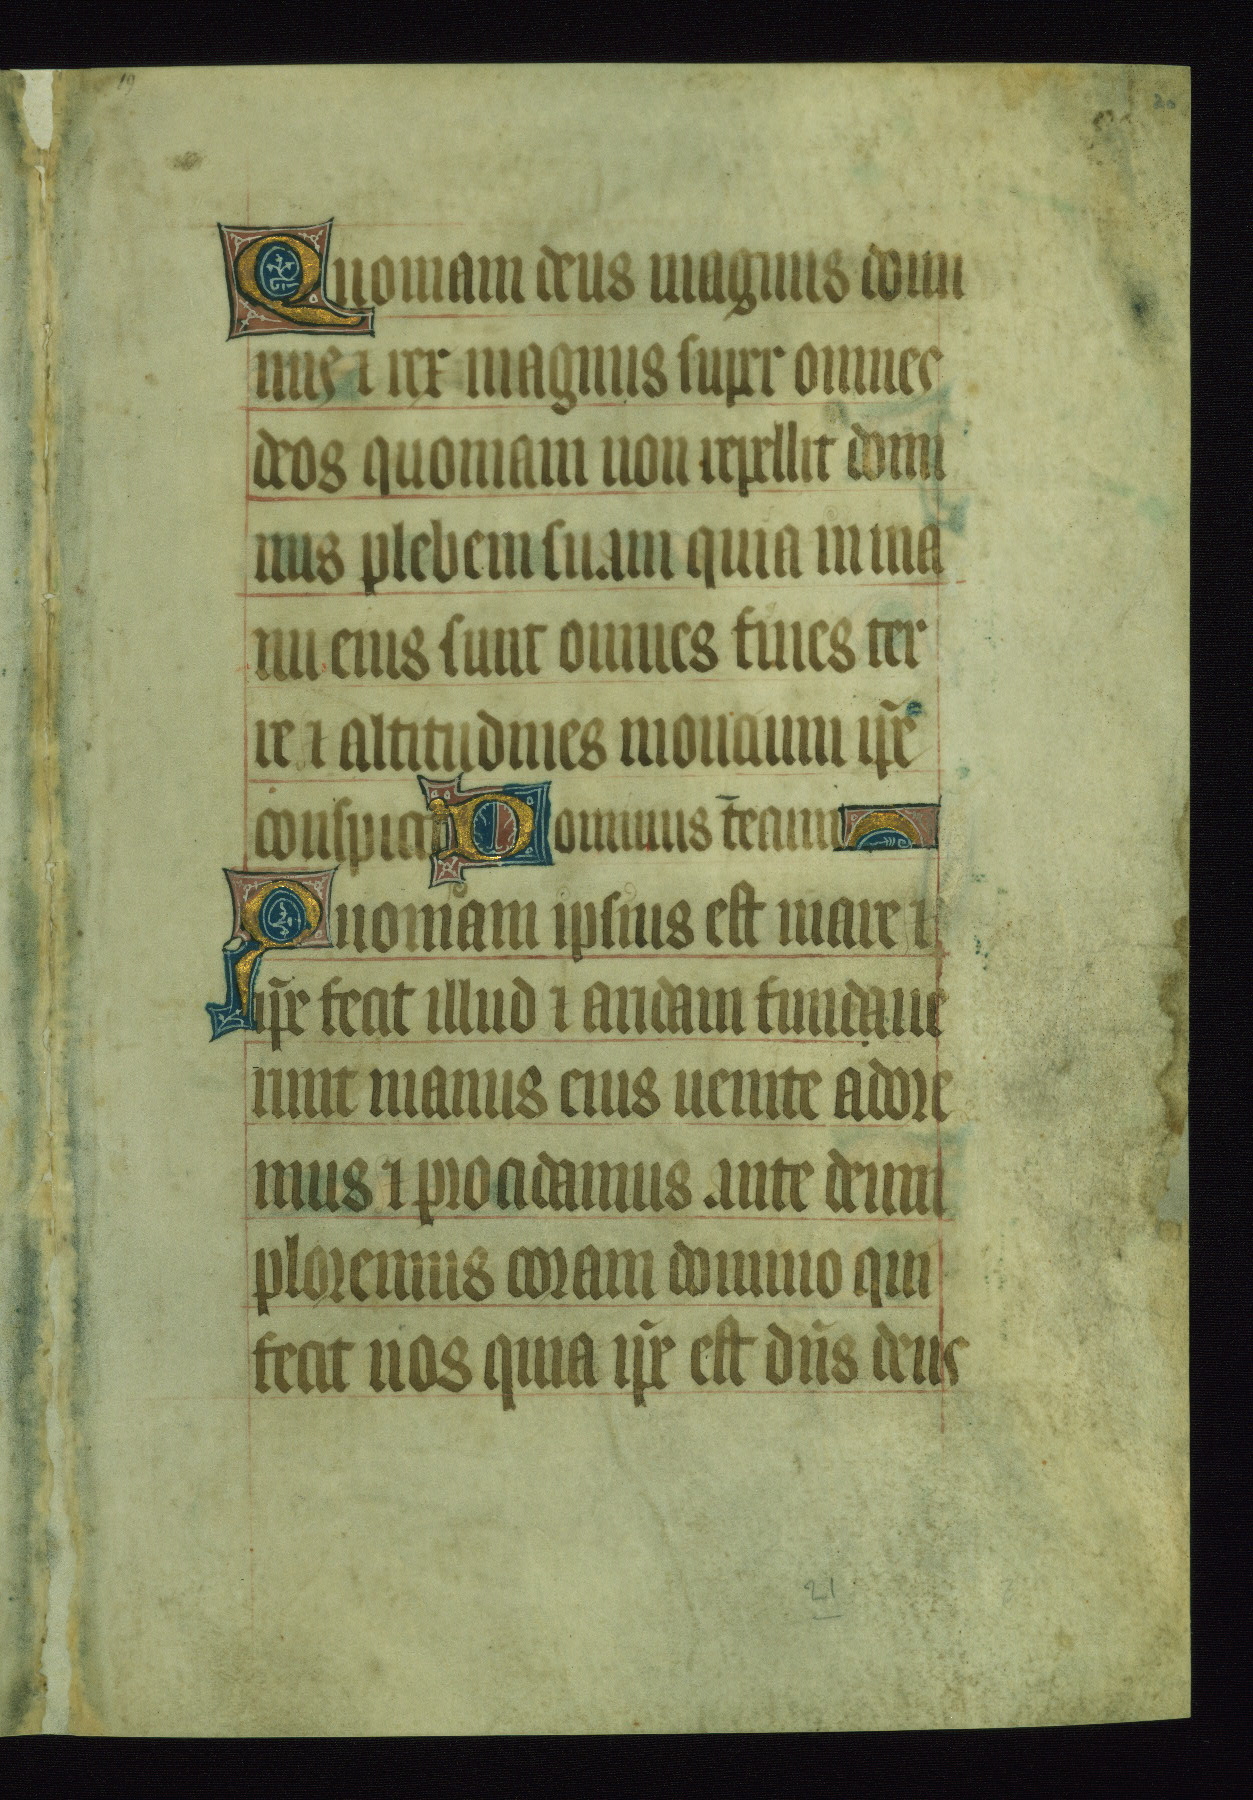 19
20
Quoniam deus magnus domi
nus ⁊ rex magnus super omnes
deos quoniam non repellit domi
nus plebem suam quia in ma
nu eius sunt omnes fines ter
re ⁊ altitudines moncium ip̄e
conspicit Dominus t̄ecum
Quoniam ipsius est mare ⁊
ip̄e fecit illud ⁊ aridam fundaue
runt manus eius uenite adore
mus ⁊ procidamus ante deum
ploremus coram domino qui
fecit nos quia ip̄e est dn̄s deus
21